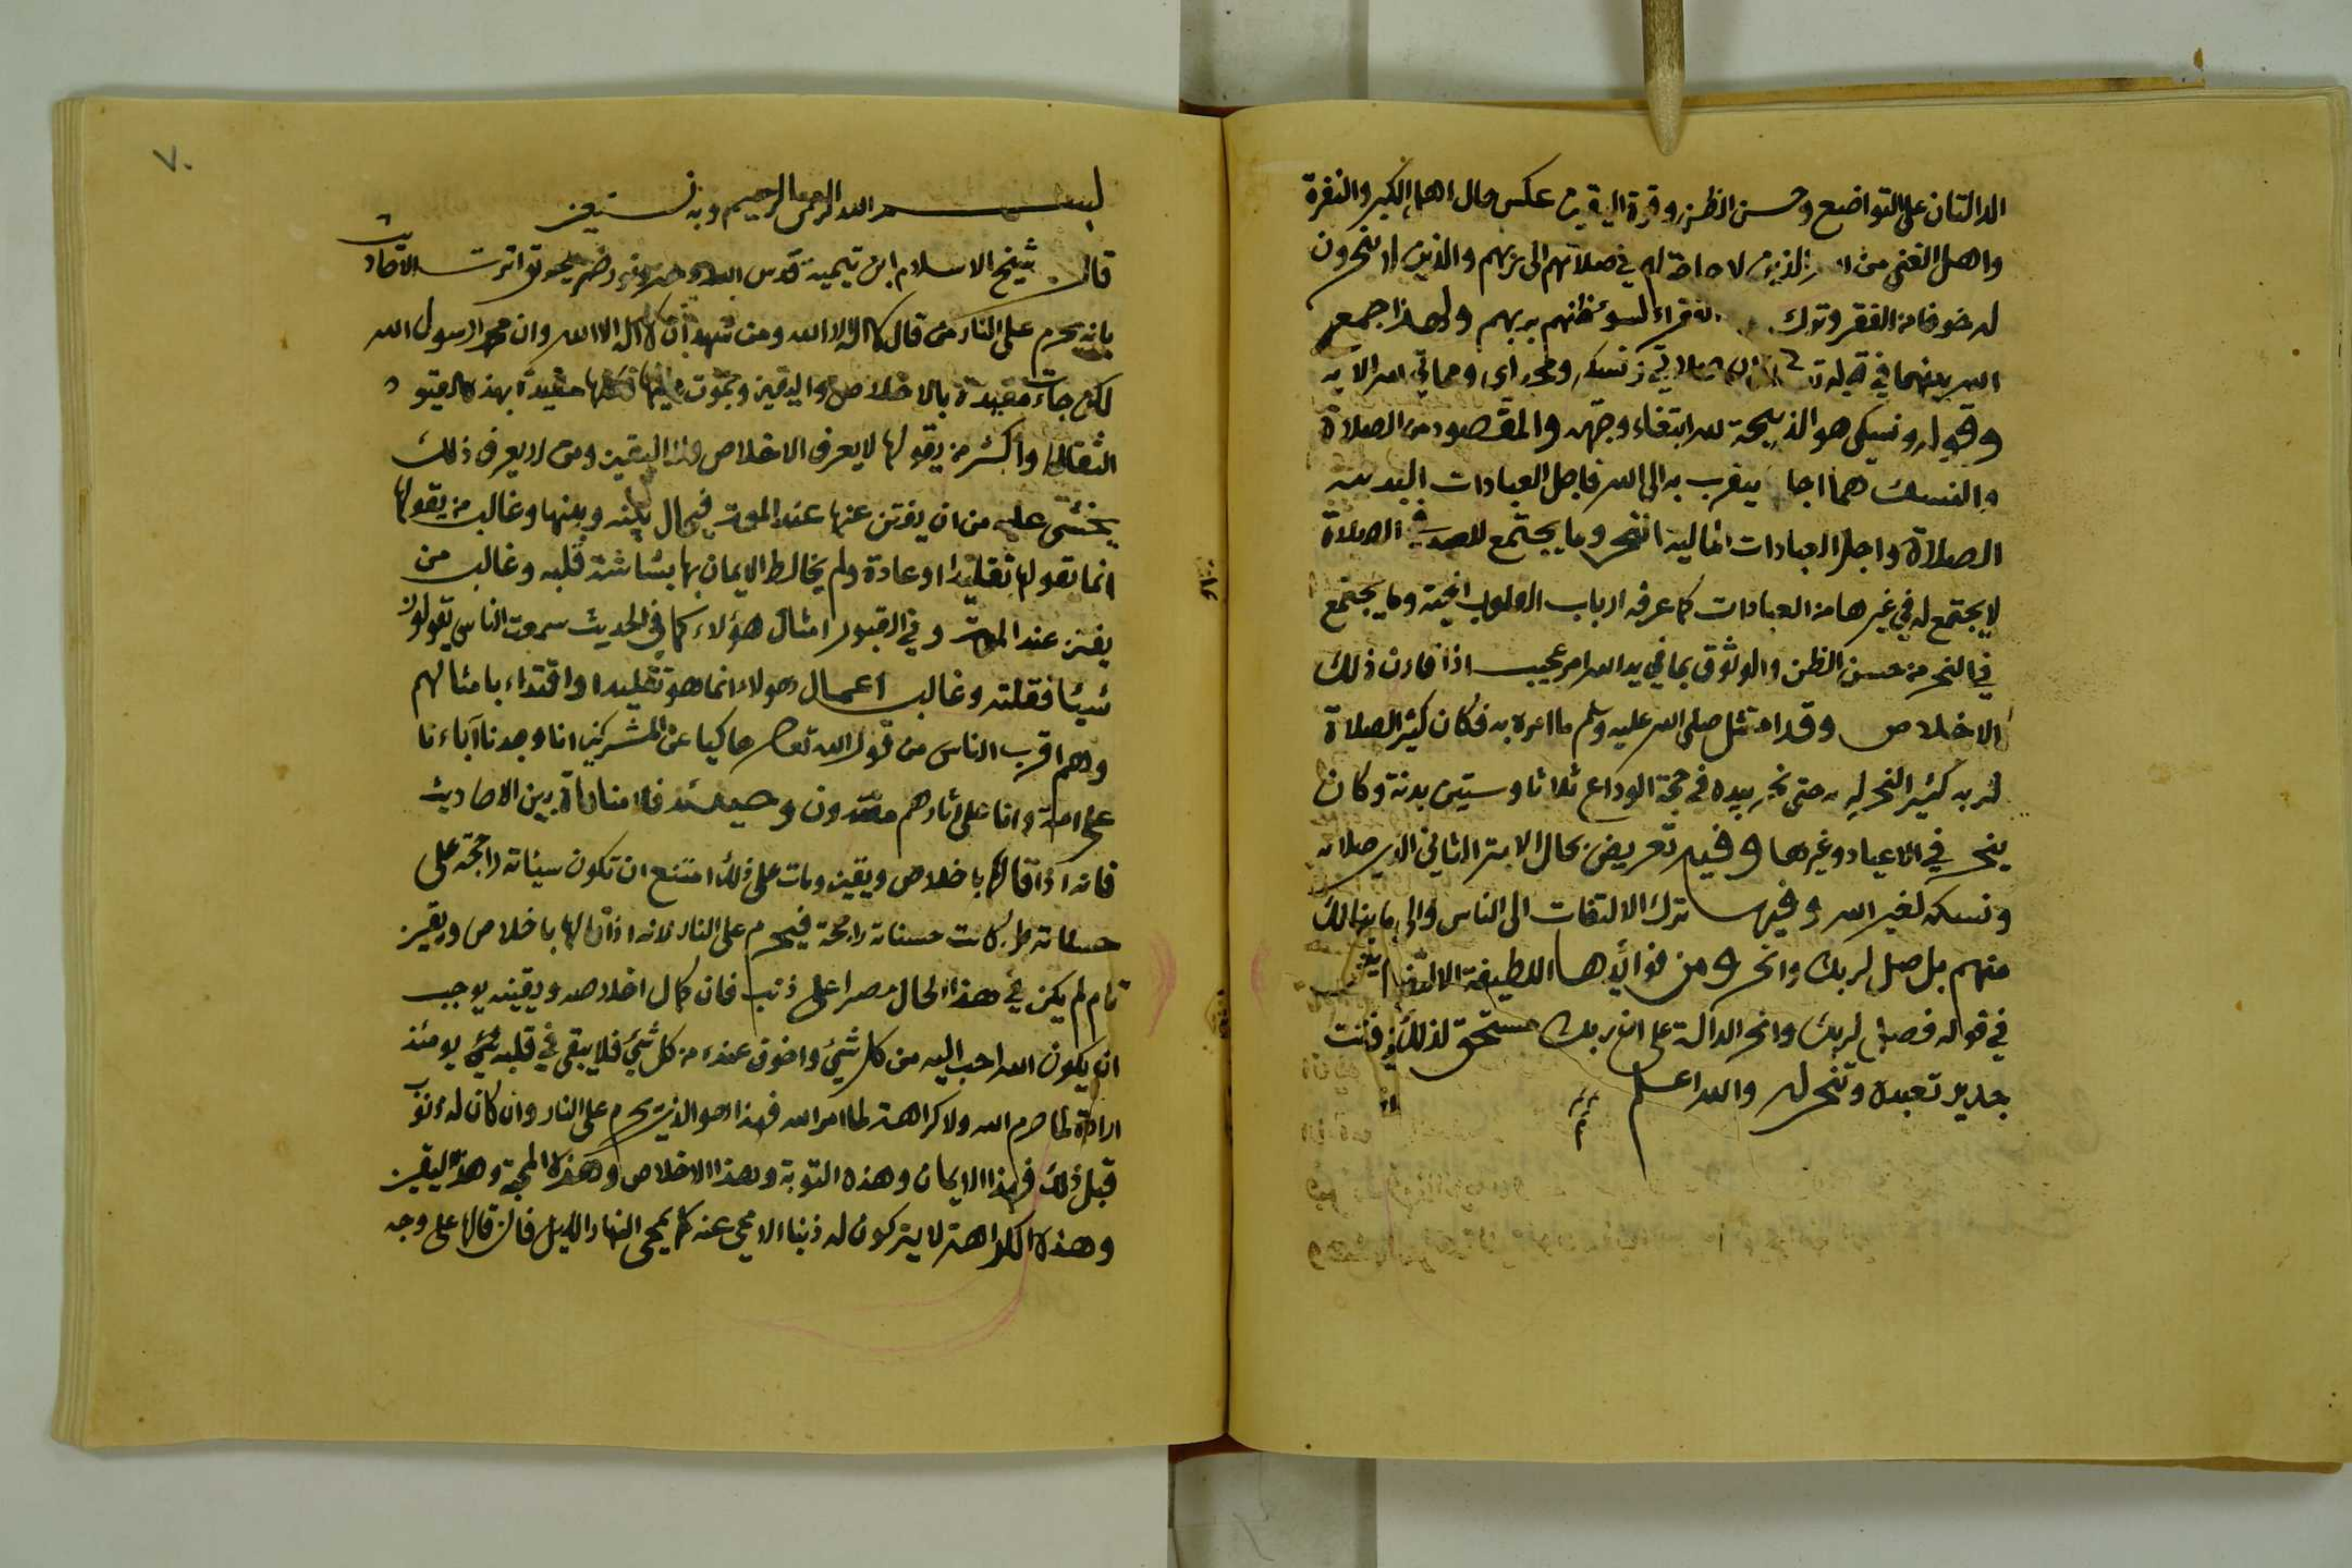 الدالتان على التواضع وحسن الظن وقوة اليقين عكس حال اهل الكبر والنفرة
واهل الغنى من الذين لا حاجة لهم في صلاتهم الى ربهم والذين لا ينحرون
له خوفا من الفقر وترك الفقراء لسوء ظنهم بربهم ولهذا جمع
الله بينهما في قوله ان صلاتي ونسكي ومحياي ومماتي لله الآية
وقوله ونسكي هو الذبيحة لله ابتغاء وجهه والمقصود من الصلاة
والنسك هما اجل يتقرب به الى الله فاجل العبادات البدنية
الصلاة واجل العبادات المالية النحر وما يجتمع للعبد في الصلاة
لا يجتمع له في غيرها من العبادات كما عرفه ارباب القلوب الحية وما يجتمع
في النحر من حسن الظن والوثوق بما في يد الله امر عجيب اذا قارن ذلك
الاخلاص وقد امتثل صلى الله عليه وسلم ما امره به فكان كثير الصلاة
لربه كثير النحر له حتى نحر بيده في حجة الوداع ثلاثا وستين بدنة وكان
ينحر في الاعياد وغيرها وفيه تعريض بحال الابتر الثاني الذي صلاته
ونسكه لغير الله وفيها ترك الالتفات الى الناس والى ما ينالك
منهم بل صل لربك وانحر ومن فوائدها اللطيفة الالتفات
في قوله فصل لربك وانحر الدالة على ان ربك مستحق لذلك فانت
جدير تعبده وتنحر له والله اعلم
٧٠
بسم الله الرحمن الرحيم وبه نستعين
قال شيخ الاسلام ابن تيمية قدس الله روحه تواترت الاحاديث
بانه يحرم على النار من قال لا اله الا الله ومن شهد ان لا اله الا الله وان محمدا رسول الله
لكن جاءت مقيدة بالاخلاص واليقين وبموت عليها فكلها مقيدة بهذه القيود
الثقال واكثر من يقولها لا يعرف الاخلاص ولا اليقين ومن لا يعرف ذلك
يخشى عليه من ان يفتن عنها عند الموت فيحال بينه وبينها وغالب من يقولها
انما يقولها تقليدا او عادة ولم يخالط الايمان بها بشاشة قلبه وغالب من
يفتن عند الموت وفي القبور امثال هؤلاء كما في الحديث سمعت الناس يقولون
شيئا فقلته وغالب اعمال هولاء انما هو تقليدا واقتداء بامثالهم
وهم اقرب الناس من قول الله تعالى حاكيا عن المشركين انا وجدنا آباءنا
على امة وانا على اثارهم مقتدون وحينئذ فلا منافاة بين الاحاديث
فانه اذا قالها باخلاص ويقين ومات على ذلك امتنع ان تكون سيئاته راجحة على
حسناته بل كانت حسناته راجحة فيحرم على النار لانه اذا قالها باخلاص ويقين
تام لم يكن في هذا الحال مصرا على ذنب فان كمال اخلاصه ويقينه يوجب
ان يكون الله احب اليه من كل شيء واخوف عنده من كل شيء فلا يبقى في قلبه شيء يومئذ
ارادة لما حرم الله ولا كراهة لما امر الله فهذا هو الذي يحرم على النار وان كان له ذنوب
قبل ذلك فهذا الايمان وهذه التوبة وهذا الاخلاص وهذه المحبة وهذا اليقين
وهذه الكراهة لا يتركون له ذنبا الا محي عنه كما يمحى النهار الليل فان قالها على وجه